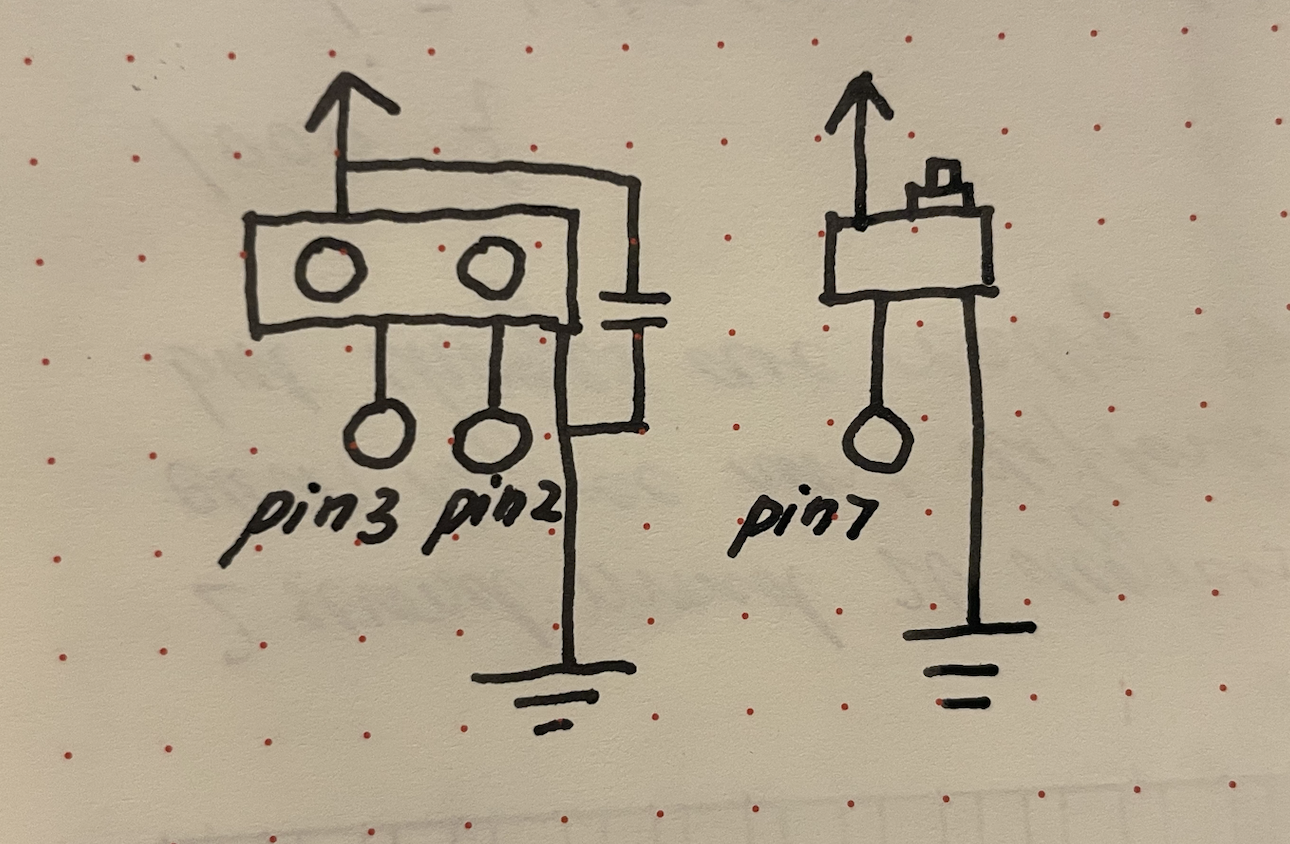 pin3 pin2 pin7